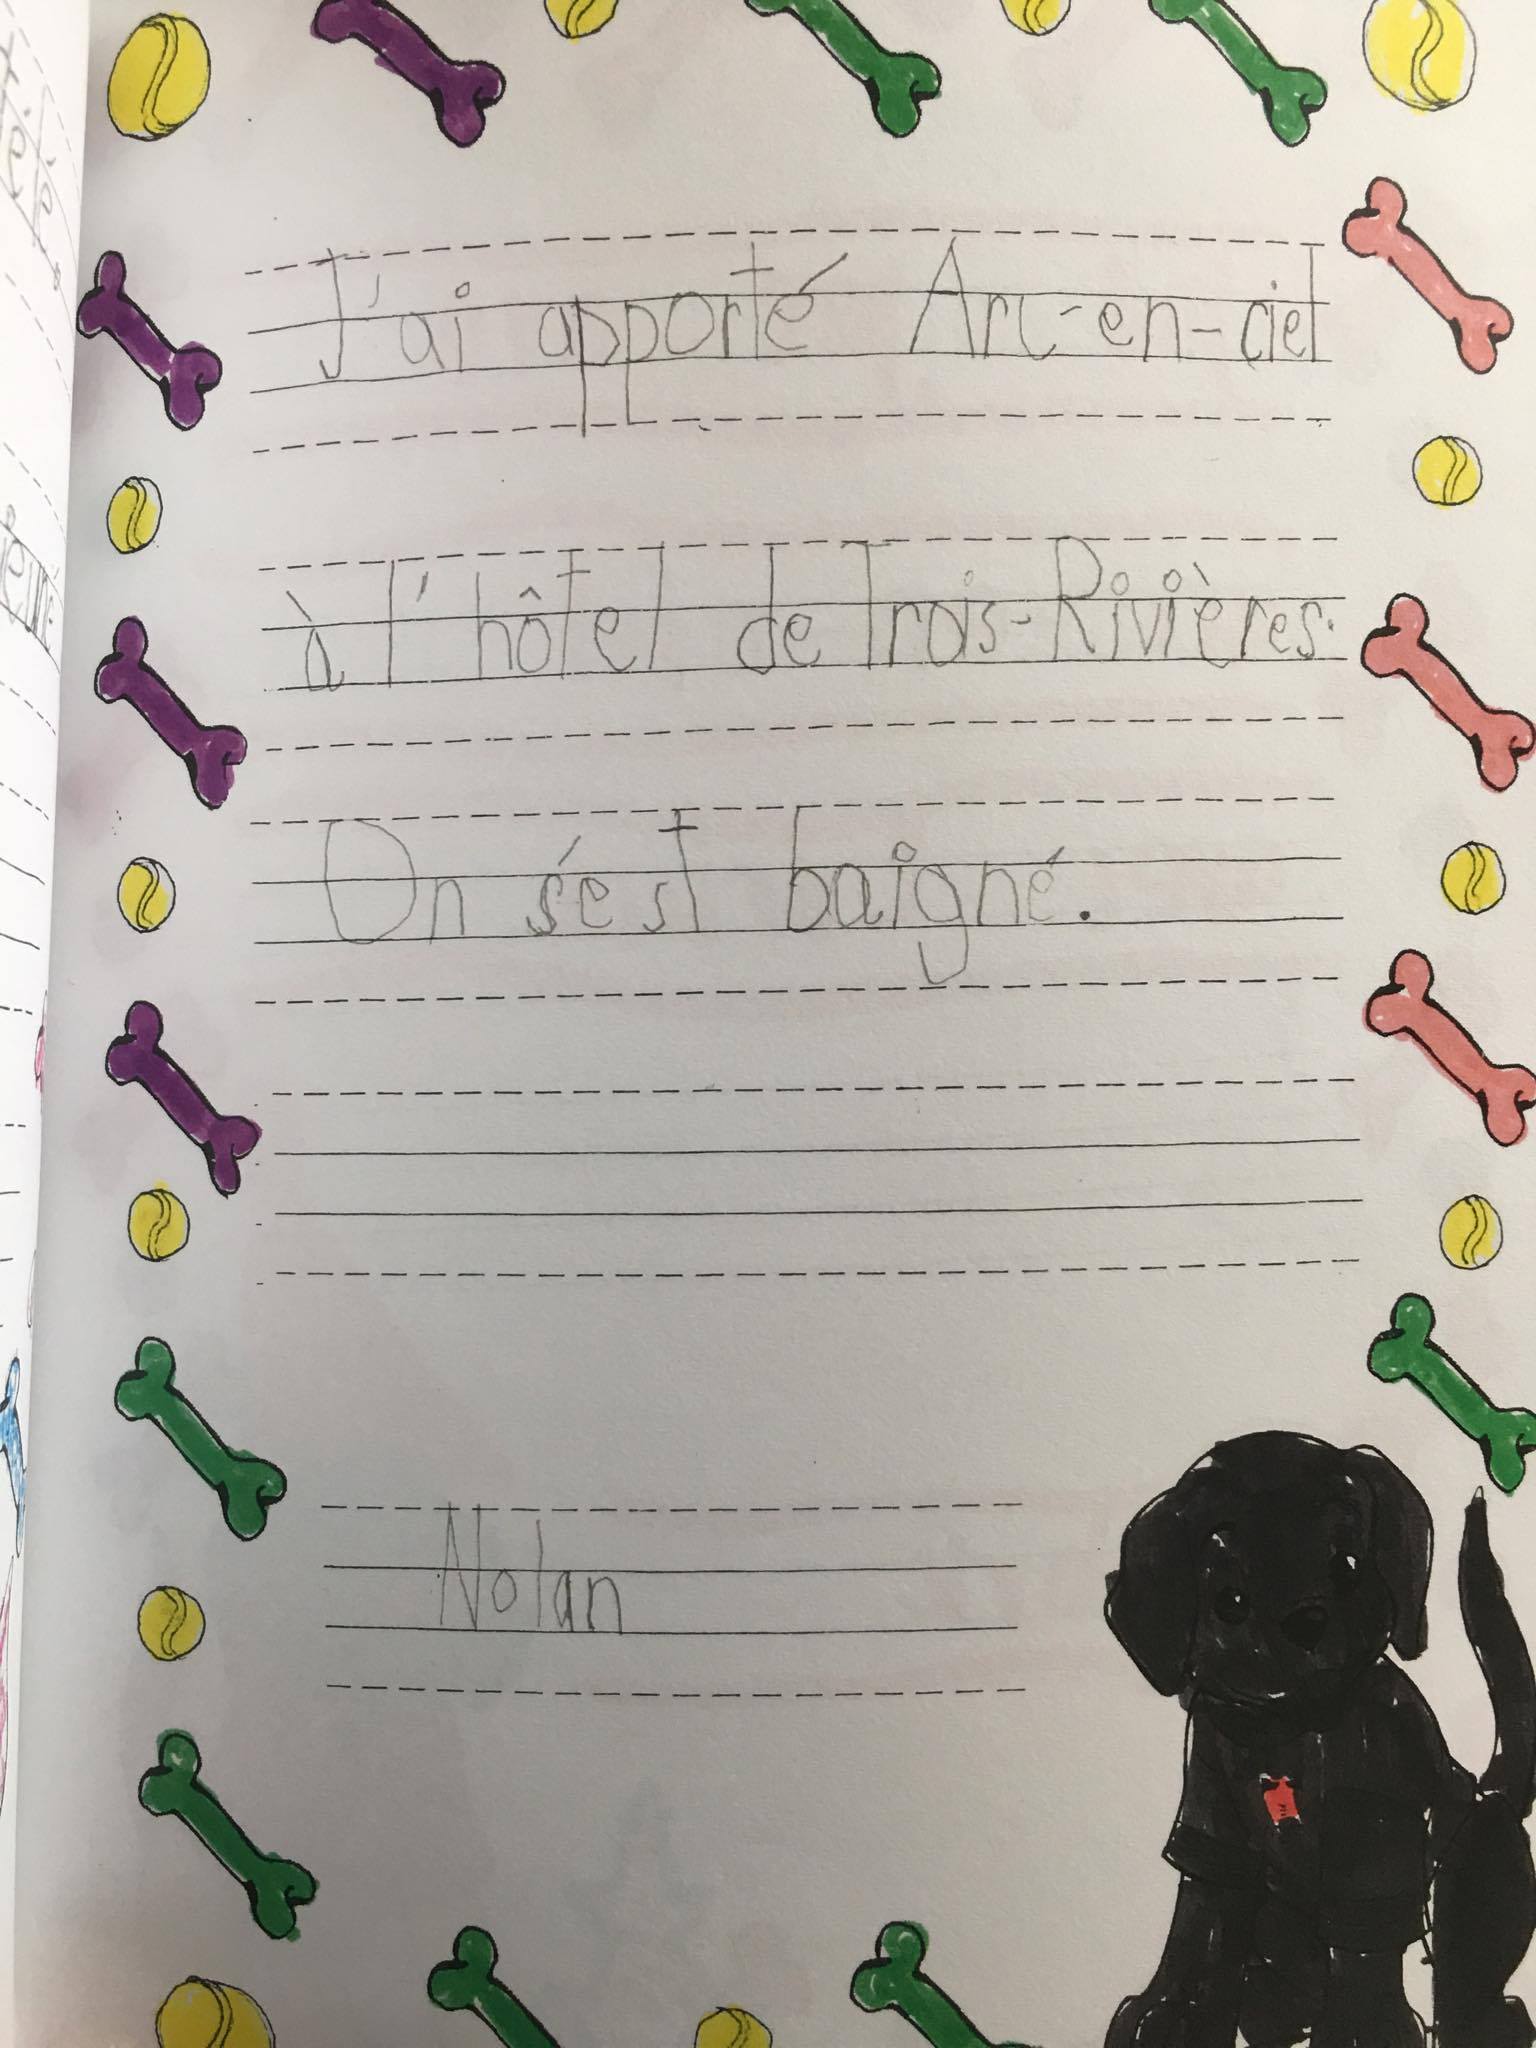 J'ai apporté Arc-en-ciel
à l'hôtel de Trois-Rivières.
On s'est baigné.
Nolan